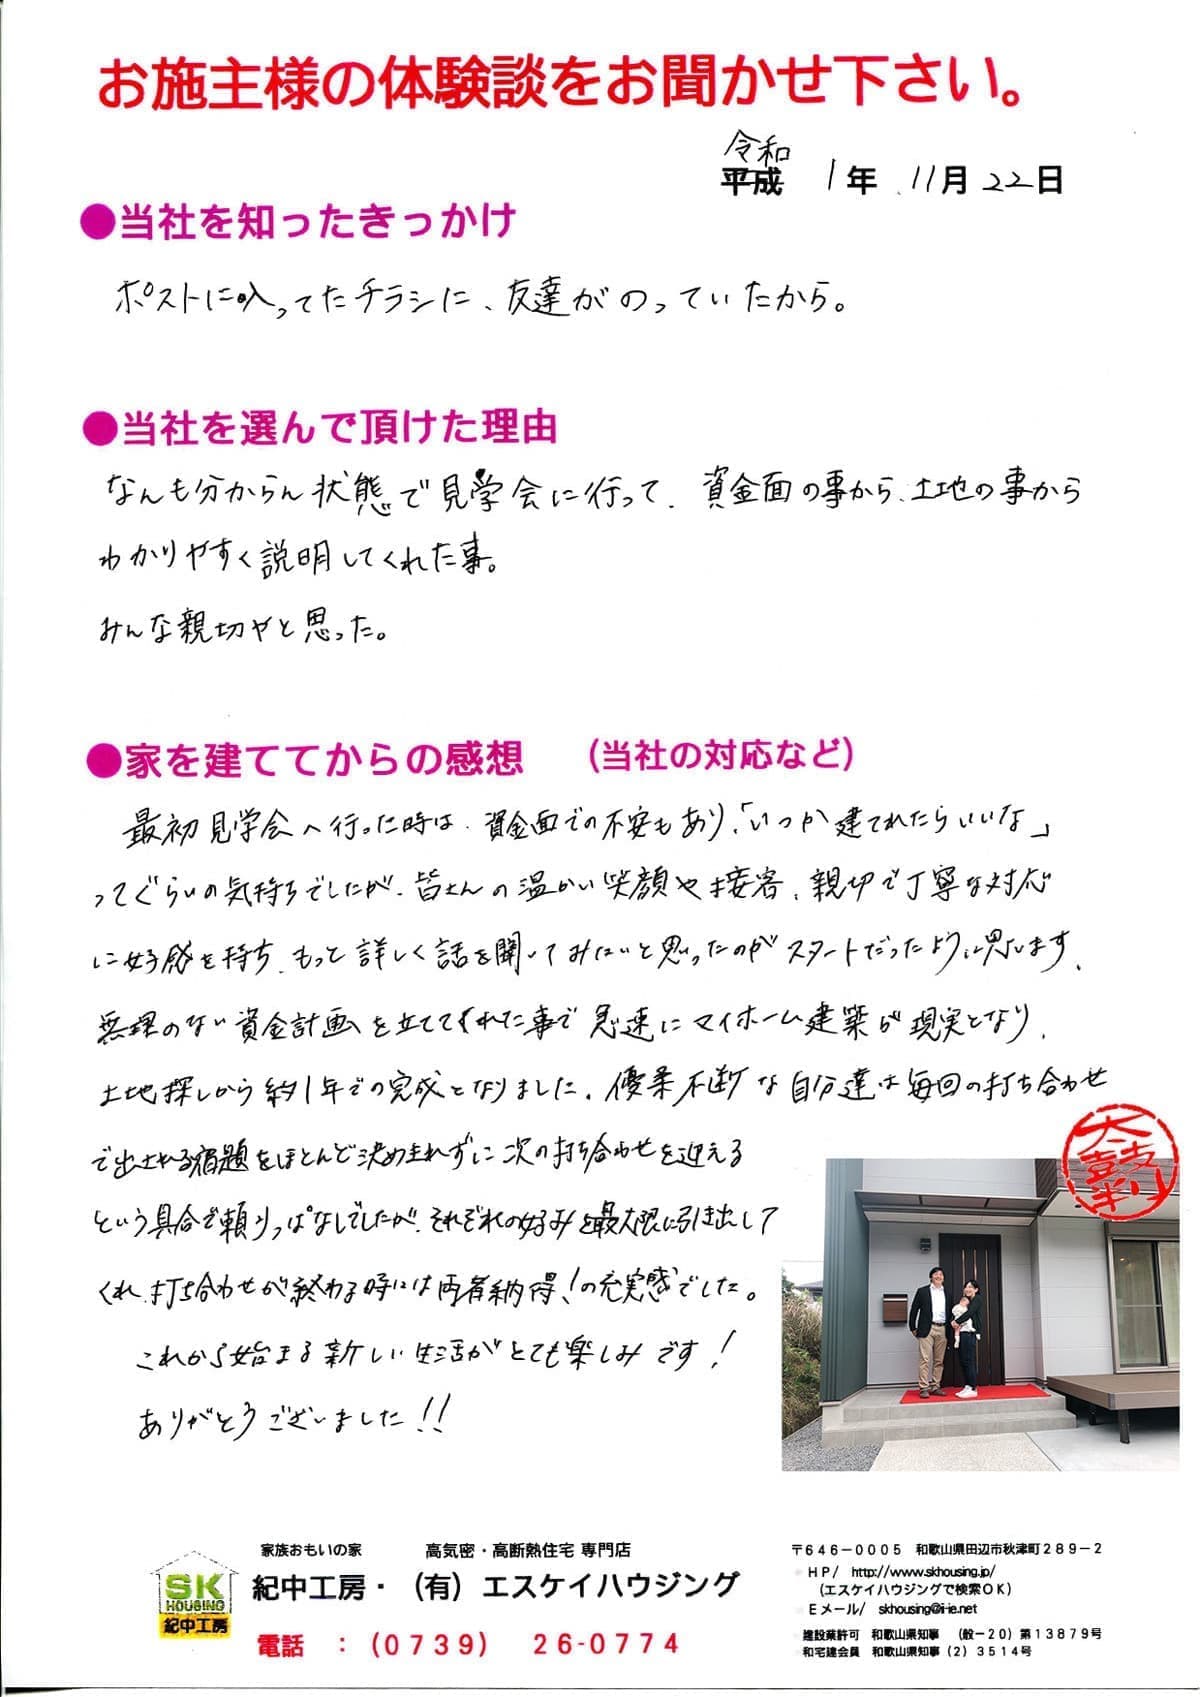 お施主様の体験談をお聞かせ下さい。
令和
平成 1年 11月 22日
●当社を知ったきっかけ
ポストに入ってたチラシに、友達がのっていたから。
●当社を選んで頂けた理由
なんも分からん状態で見学会に行って、資金面の事から、土地の事から
わかりやすく説明してくれた事。
みんな親切やと思った。
●家を建ててからの感想 (当社の対応など)
最初見学会へ行った時は、資金面での不安もあり、「いつか建てれたらいいな」
ってぐらいの気持ちでしたが、皆さんの温かい笑顔や接客、親切で丁寧な対応
に好感を持ち、もっと詳しく話を聞いてみたいと思ったのがスタートだったように思います、
無理のない資金計画を立ててくれた事で急速にマイホーム建築が現実となり、
土地探しから約1年での完成となりました。優柔不断な自分達は毎回の打ち合わせ
で出される宿題をほとんど決めきれずに次の打ち合わせを迎える
という具合で頼りっぱなしでしたが、それぞれの好みを最大限に引き出して
くれ、打ち合わせが終わる時には両者納得!の充実感でした。
これから始まる新しい生活がとても楽しみです!
ありがとうございました!!
太鼓判
家族おもいの家 高気密・高断熱住宅 専門店
SK
HOUSING
紀中工房
紀中工房・(有)エスケイハウジング
電話 :(0739) 26-0774
〒646-0005 和歌山県田辺市秋津町289-2
HP/ http://www.skhousing.jp/
(エスケイハウジングで検索OK)
Eメール/ skhousing@i-ie.net
建設業許可 和歌山県知事 (般-20)第13879号
和宅建会員 和歌山県知事(2)3514号